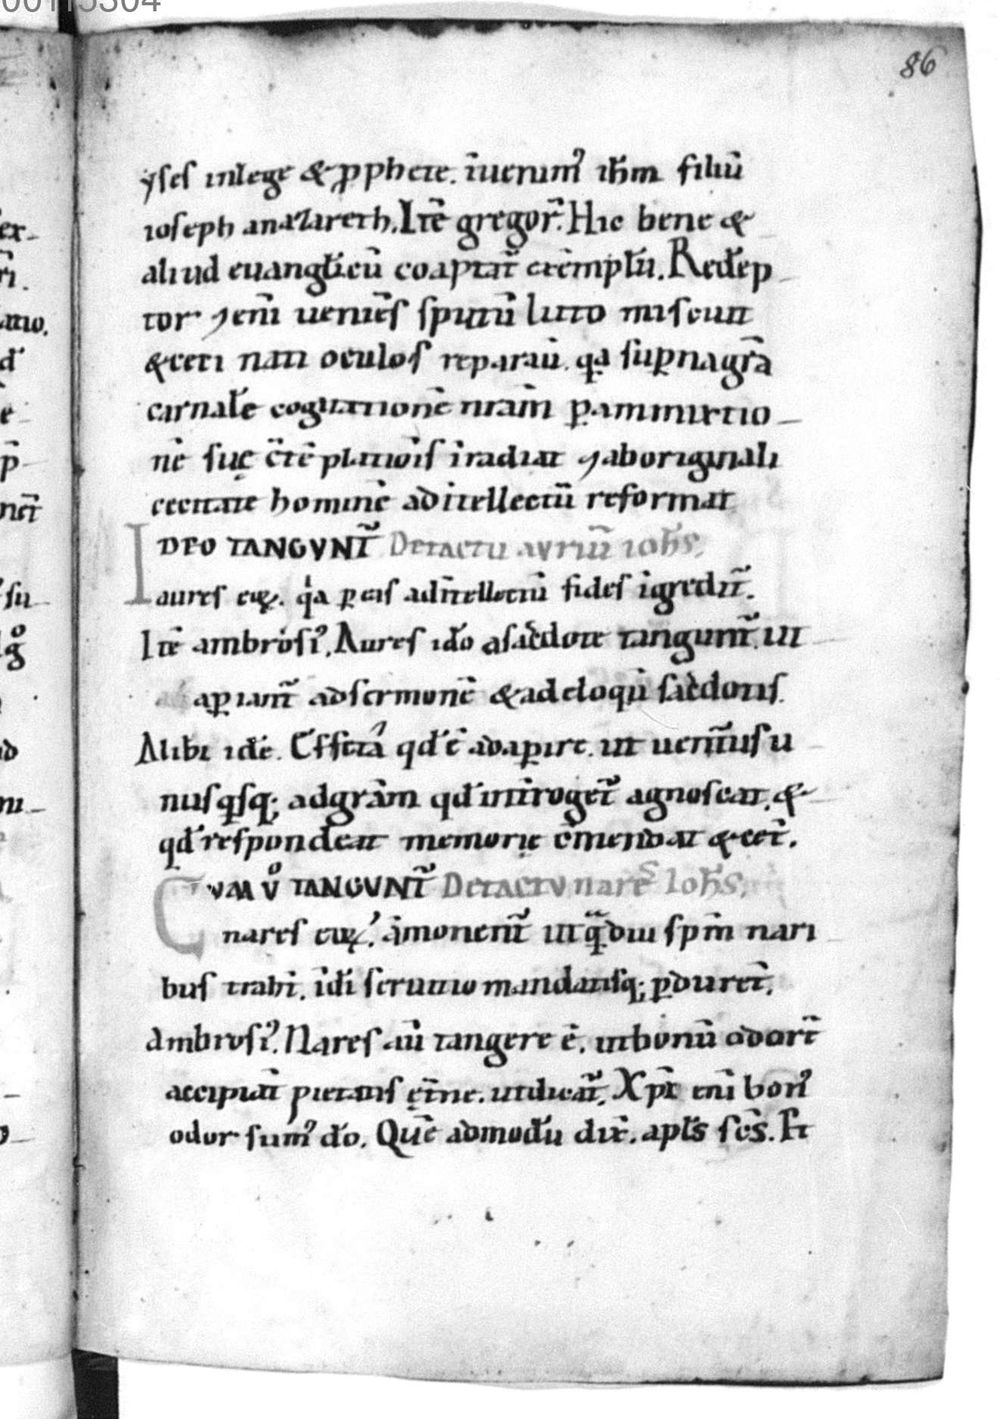 00115304
86
ẏses inlege & ꝓphete. īuenimꝰ ihm̄ filiū
ioseph anazareth. Itē gregor̄. Hic bene &
aliud euangl̄icū coaptat̄ exēmpl̄ū. Redēp
tor ꝯ eni̅ ueniēs sputū luto miscuit
& ceci nati oculos reparau̅. qa suꝑna gr̄a
carnalē cogitationē nr̄am̄ ꝑ ammixtio
nē suę c̄tēplatiōis īradiat ꝯ ab originali
cecitate hominē ad ītellectū reformat
IDEO TANGVNT̄ De tactu auriū ioh̄s.
aures eiꝰ. qa ꝑ eas ad ītellectū fides īgredit̄.
Itē ambrosiꝰ. Aures ido asac̄dote tangunt̄. ut
aꝑiant̄ ad sermonē & ad eloq̄u sac̄dotis.
Alibi idē. Effeta qd̄ ē adaꝑire. ut uent̄usu
nusqsq; ad gr̄am qd̄ int̄roget̄ agnoscat. &
qd̄ respondeat memorię c̄mendat & cet̄.
CVM v̊ TANGVNT̄ De tactu nares̄ Ioh̄s.
nares eiꝰ. āmonent̄ ut q̄diu sp̄m nari
bus trahi. īdi seruitio mandatisq; ꝑduret̄.
Ambrosiꝰ. Nares au̅ tangere ē. ut bonū odorē
accipiat pietatis ęt̄ne. ut dicat̄. Xp̄i eni̅ bonꝰ
odor sumꝰ do̅. Quē admodū dix̄. apl̄s sc̄s. Et